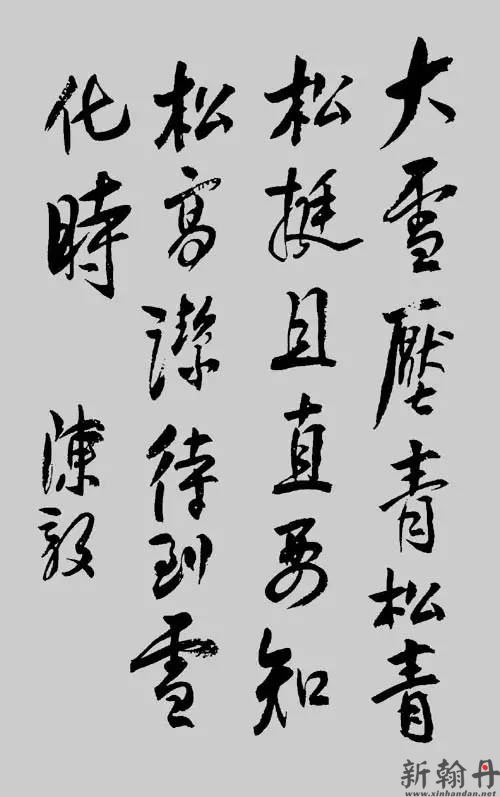 大雪壓青松青
松挺且直要知
松高潔待到雪
化時 陳毅
新翰丹
www.xinhandan.net